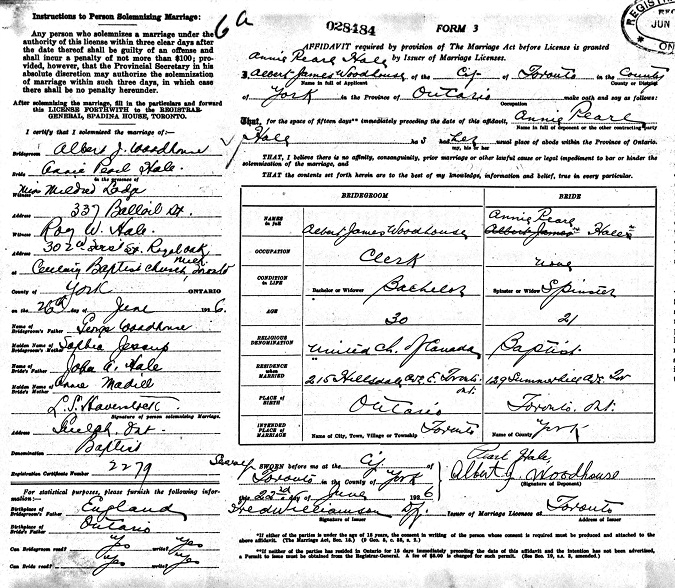 Instructions to Person Solemnizing Marriage:
Any person who solemnizes a marriage under the
authority of this license within three clear days after
the date thereof shall be guilty of an offense and
shall incur a penalty of not more than $100; pro-
vided, however, that the Provincial Secretary in his
absolute discretion may authorize the solemnization
of marriage within three such days, in which case
there shall be no penalty hereunder.
After solemnizing the marriage, fill in the particulars and forward
this LICENSE FORTHWITH TO THE REGISTRAR-
GENERAL, SPADINA HOUSE, TORONTO.
I certify that I solemnized the marriage of:—
Bridegroom Albert J. Woodhouse
Bride Annie Pearl Hale
in the presence of
Witness Miss Mildred Lodge
Address 337 Balliol St.
Witness Roy W. Hale
Address Royal Oak, Mich.
at Baptist Church, Toronto
County of York ONTARIO
on the 26th day of June 1926.
Name of Bridegroom's Father George Woodhouse
Maiden Name of Bridegroom's Mother Sophia Jessup
Name of Bride's Father John A. Hale
Maiden Name of Bride's Mother Annie Madill
Signature of person solemnizing Marriage.
Address Guelph Ont
Denomination Baptist
Registration Certificate Number 2279
For statistical purposes, please furnish the following infor-
mation:—
Birthplace of Bridegroom's Father England
Birthplace of Bride's Father Ontario
Can Bridegroom read? Yes write? Yes
Can Bride read? Yes write? Yes
6a
028484 FORM 3
REGISTRAR
JUN
ON
AFFIDAVIT required by provision of The Marriage Act before License is granted
by Issuer of Marriage Licenses.
Annie Pearl Hale
I, Albert James Woodhouse of the City of Toronto in the County
Name in full of Applicant County or District
of York in the Province of Ontario make oath and say as follows:
Occupation
That, for the space of fifteen days** immediately preceding the date of this affidavit, Annie Pearl
Name in full of deponent or the other contracting party
Hale had her usual place of abode within the Province of Ontario.
my, his or her
THAT, I believe there is no affinity, consanguinity, prior marriage or other lawful cause or legal impediment to bar or hinder the
solemnization of the marriage, and
THAT the contents set forth herein are to the best of my knowledge, information and belief, true in every particular.
BRIDEGROOM BRIDE
NAMES in full Albert James Woodhouse Annie Pearl Albert James Hale
OCCUPATION Clerk none
CONDITION IN LIFE Bachelor or Widower Bachelor Spinster or Widow Spinster
AGE 30 21
RELIGIOUS DENOMINATION United Ch. of Canada Baptist
RESIDENCE WHEN MARRIED 215 Hillsdale Ave E. Toronto Ont. 129 Summerhill Ave Tor
PLACE OF BIRTH Ontario Toronto, Ont.
INTENDED PLACE OF MARRIAGE Name of City, Town, Village or Township Toronto Name of County York
SWORN before me at the City of
Toronto in the County of York
this 22nd day of June 1926
Pearl Hale
Albert J. Woodhouse
(Signature of Deponent)
Fred Williamson
Signature of Issuer
Issuer of Marriage Licenses at Toronto
Address of Issuer
*If either of the parties is under the age of 18 years, the consent in writing of the person whose consent is required must be produced and attached to the
above affidavit. (The Marriage Act, Sec. 15.)
**If neither of the parties has resided in Ontario for 15 days immediately preceding the date of this affidavit and the intention has not been advertised,
a Permit to issue must be obtained from the Registrar-General. A fee of $5.00 is charged for such permit.